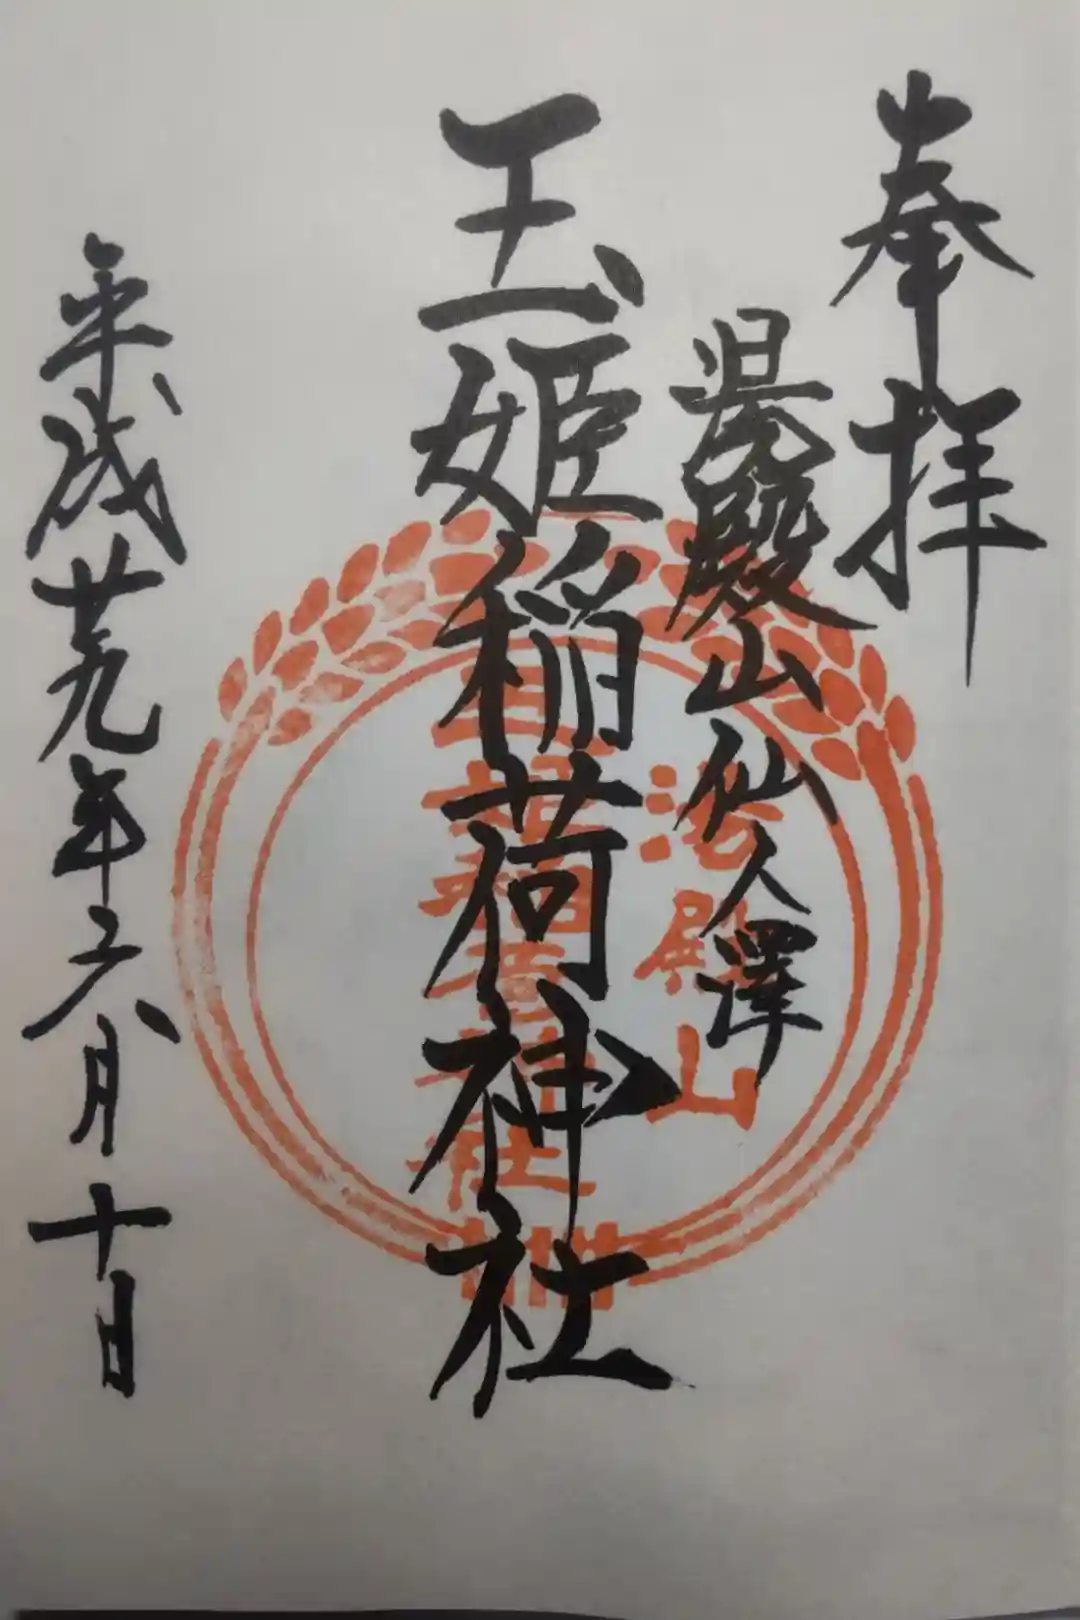 奉拝
湯殿山仙人澤
玉姫稲荷神社
平成廿九年六月十日
湯殿山
玉姫稲荷神社